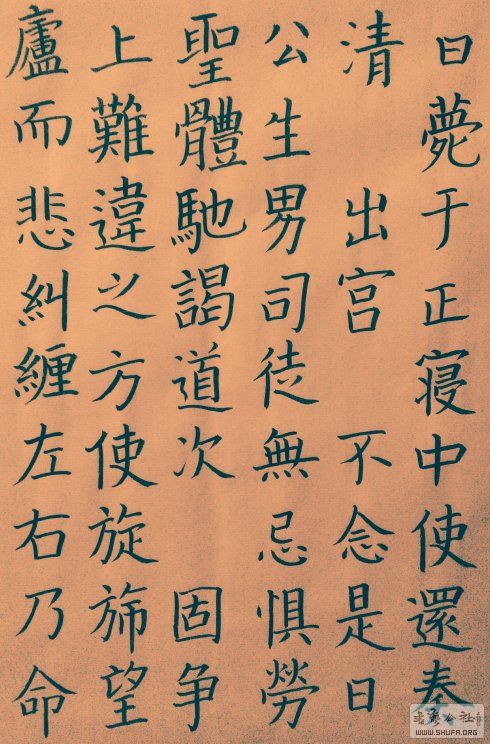 日薨于正寝中使還奏
清 出宫 不念是日
公生男司徒無忌惧勞
聖體馳謁道次 固争
上難違之方使旋斾望
廬而悲糾纏左右乃命
WWW.SHUFA.ORG